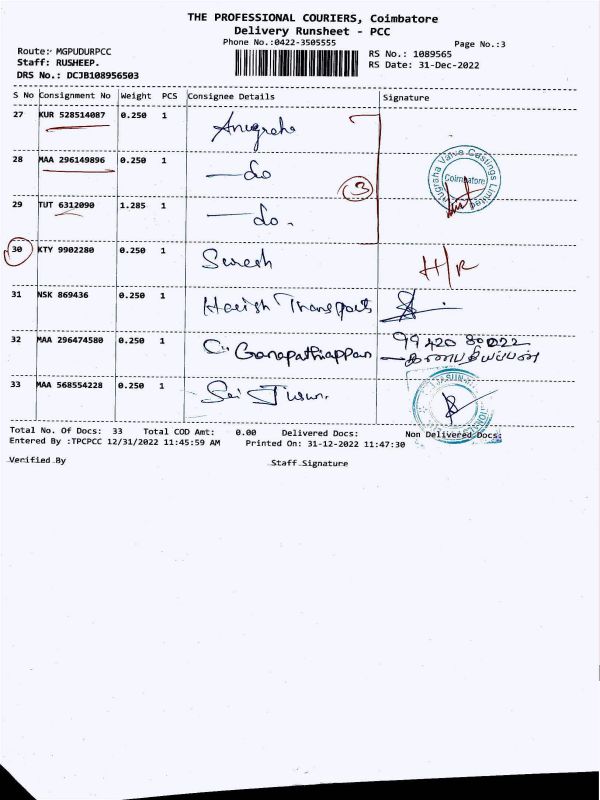 THE PROFESSIONAL COURIERS, Coimbatore
Delivery Runsheet - PCC
Phone No.:0422-3505555
Page No.:3
Route:- MGPUDURPCC
RS No.: 1089565
Staff: RUSHEEP.
RS Date: 31-Dec-2022
DRS No.: DCJB108956503
S No Consignment No Weight PCS Consignee Details Signature
27 KUR 528514087 0.250 1 Anugraha
28 MAA 296149896 0.250 1 — do
3
Anugraha Valve Castings Limited
Coimbatore
29 TUT 6312090 1.285 1 — do.
30 KTY 9902280 0.250 1 Suresh H/R
31 NSK 869436 0.250 1 Harish Transports
32 MAA 296474580 0.250 1 C. Ganapathiappan 99420 80222
கணபதியப்பன்
33 MAA 568554228 0.250 1 Sai
Total No. Of Docs: 33 Total COD Amt: 0.00 Delivered Docs: Non Delivered Docs:
Entered By :TPCPCC 12/31/2022 11:45:59 AM Printed On: 31-12-2022 11:47:30
Verified By Staff Signature